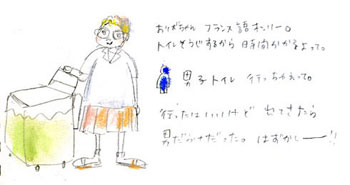 おばちゃん フランス語オンリー。
トイレそうじするから 時間かかるよって。
男子トイレ 行っちゃえって。
行ったはいいけど でてきたら
男だらけだった。はずかしーー!!